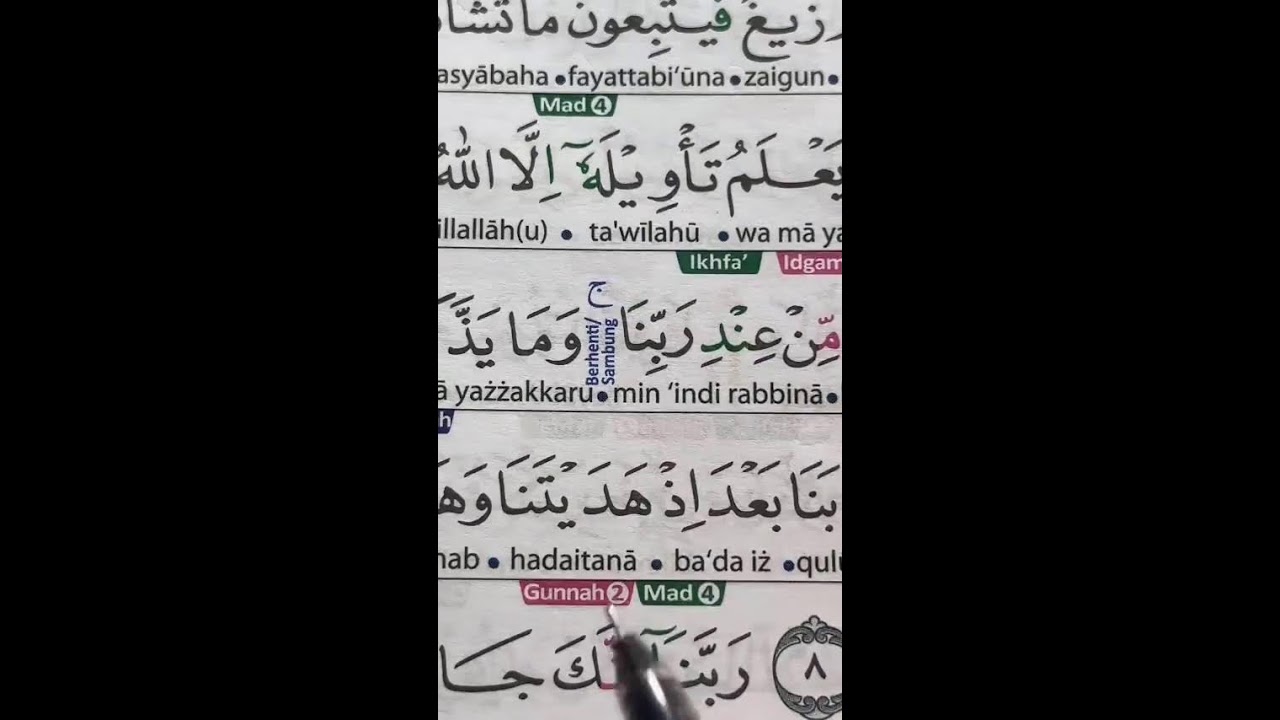 زَيْغٌ فَيَتَّبِعُوْنَ مَا تَشَا
asyābaha •fayattabi‘ūna •zaigun•
Mad 4
يَعْلَمُ تَأْوِيْلَهٗٓ اِلَّا اللّٰهُ
illallāh(u) • ta'wīlahū • wa mā ya
Ikhfa’ Idgam
مِّنْ عِنْدِ رَبِّنَا ۚ وَمَا يَذَّ
Berhenti/
Sambung
ā yażżakkaru• min ‘indi rabbinā•
h
بَنَا بَعْدَ اِذْ هَدَيْتَنَا وَهَ
hab • hadaitanā • ba‘da iż •qulū
Gunnah 2 Mad 4
٨ رَبَّنَآ اِنَّكَ جَا